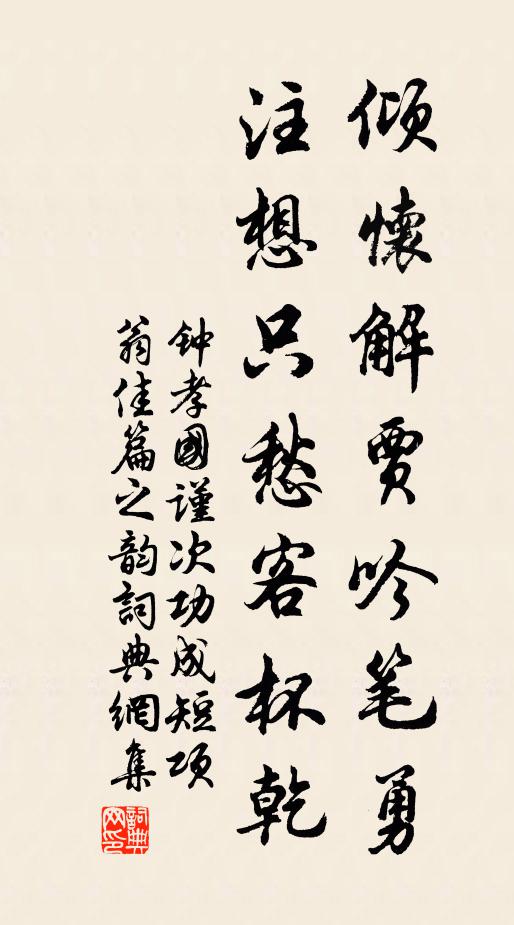 倾懷解賈吟笔勇
注想只愁客杯乾
钟孝國謹次功成短项
翁佳篇之韵詞典網集
詞典网印